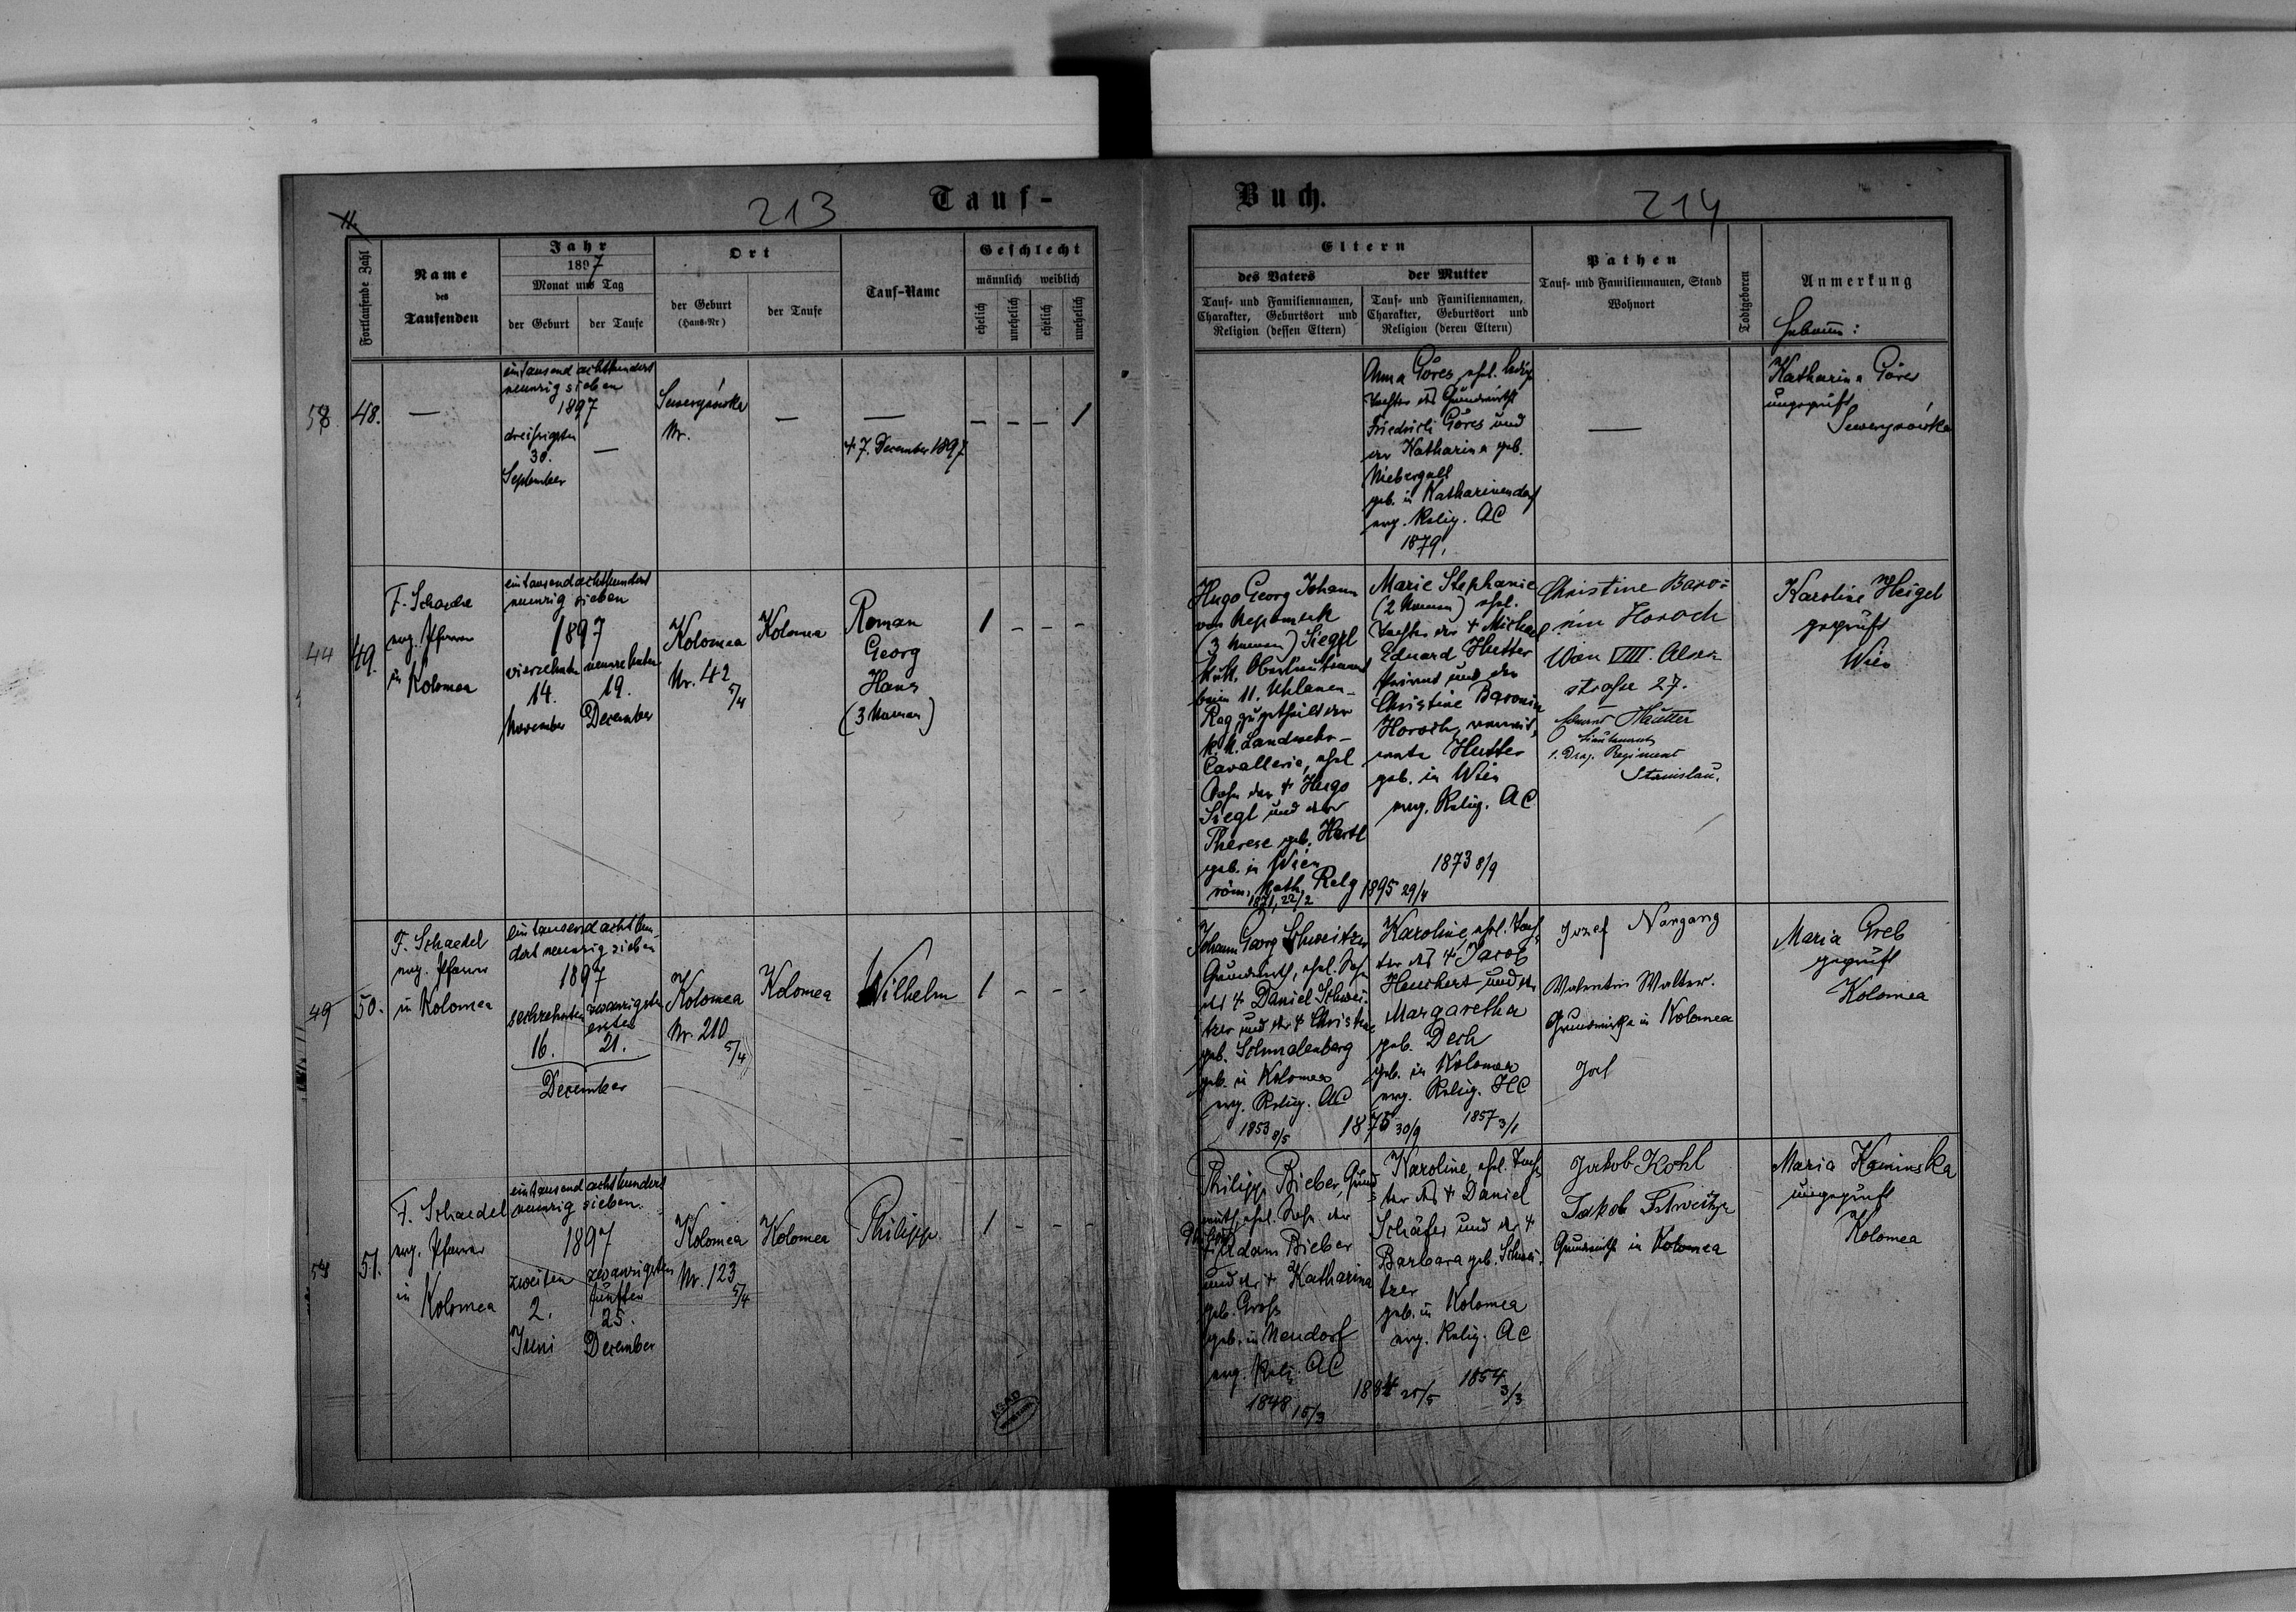 213
Tauf-
Fortlaufende Zahl
Name
des
Taufenden
Jahr
1897
Monat und Tag
der Geburt
der Taufe
Ort
der Geburt
(Haus-Nr)
der Taufe
Tauf-Name
Geschlecht
männlich
weiblich
ehelich
unehelich
ehelich
unehelich
48.
—
eintausend achthundert
neunzig sieben
1897
dreißigsten
30.
September
—
Sewerynówka
Nr.
—
—
† 7. December 1897
– – – 1
44
49.
F. Schaedel
evg. Pfarrer
in
Kolomea
eintausendachthundert
neunzig sieben
1897
vierzehnten
14.
November
neunzehnten
19.
December
Kolomea
Nr. 42
5/4
Kolomea
Roman
Georg
Hans
(3 Namen)
1 – – –
49
50.
F. Schaedel
evg. Pfarrer
in Kolomea
eintausend achthun-
dert neunzig sieben
1897
sechzehnten
16.
zwanzigsten
ersten
21.
December
Kolomea
Nr. 210
5/4
Kolomea
Wilhelm
1 – – –
51.
F. Schaedel
evg. Pfarrer
in
Kolomea
eintausend achthundert
neunzig sieben.
1897
zweiten
2.
Juni
zwanzigsten
fünften
25.
December
Kolomea
Nr. 123
5/4
Kolomea
Philipp.
1 – – –
Buch.
214
Eltern
des Vaters
Tauf- und Familiennamen,
Charakter, Geburtsort und
Religion (dessen Eltern)
der Mutter
Tauf- und Familiennamen,
Charakter, Geburtsort und
Religion (deren Eltern)
Pathen
Tauf- und Familiennamen, Stand
Wohnort
Todtgeboren
Anmerkung
Hebamme:
Anna Göres, ehel. ledige
Tochter des Grundwirths
Friedrich Göres und
der Katharina geb.
Niebergall
geb. in Katharinendorf
evg. Relig. AC
1879,
—
Katharina Göres
ungeprüft
Sewerynówka
Hugo Georg Johann
von Nepomuk
(3 Namen) Siegl
k.u.k. Oberlieutenant
beim 11. Uhlanen-
Reg zugetheilt der
k.k. Landwehr-
Cavallerie, ehel
Sohn des † Hugo
Siegl und der
Therese geb. Hartl
geb. in Wien
röm. kath. Relg
1871, 22/2
1895 29/4
Marie Stephanie
(2 Namen) ehel.
Tochter des † Michael
Eduard Hutter
Privat und der
Christine Baronin
Horoch, verwit-
wete Hutter
geb. in Wien
evg. Relig. AC
1873 8/9
Christine Baro-
nin Horoch
Wien VIII. Alser
straße 27.
Hutter
Lieutenant
1. Drag. Regiment
Stanislau.
Karoline Heigel
geprüft
Wien
Johann Georg Schweitzer
Grundwirth, ehel. Sohn
des † Daniel Schwei-
tzer und der † Christine
geb. Schmalenberg
geb. in Kolomea
evg. Relig. AC
1853 8/5
1875 30/9
Karoline, ehel. Toch-
ter des † Jacob
Heuchert und der
Margaretha
geb. Dech
geb. in Kolomea
evg. Relig. HC
1857 3/1
Jozef Nargang
Valentin Walter.
Grundwirthe in Kolomea
Maria Greb
geprüft
Kolomea
Philipp Bieber, Grund-
wirth, ehel. Sohn des
† Adam Bieber
und der † Katharina
geb. Groß
geb. in Neudorf
evg. Relig. AC
1848 15/3
Karoline, ehel. Toch-
ter des † Daniel
Schäfer und der †
Barbara geb. Schwei-
tzer
geb. in Kolomea
evg. Relig. AC
1854 3/3
Jakob Kohl
Jakob Schweitzer
Grundwirthe in Kolomea
Maria Kaminska
ungeprüft
Kolomea